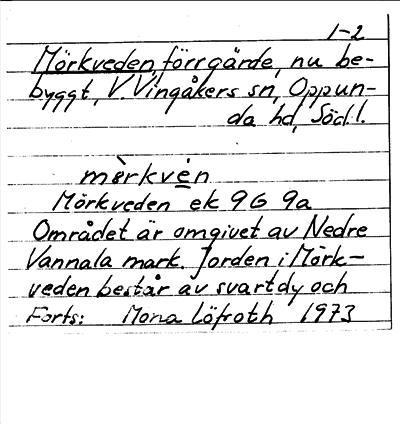 1-2
Mörkveden, förr gärde, nu be-
byggt, V. Vingåkers sn, Oppun-
da hd, Södl.
mö̀rkvèn
Mörkveden ek 9G 9a
Området är omgivet av Nedre
Vannala mark. Jorden i Mörk-
veden består av svartdy och
Forts: Mona Löfroth 1973